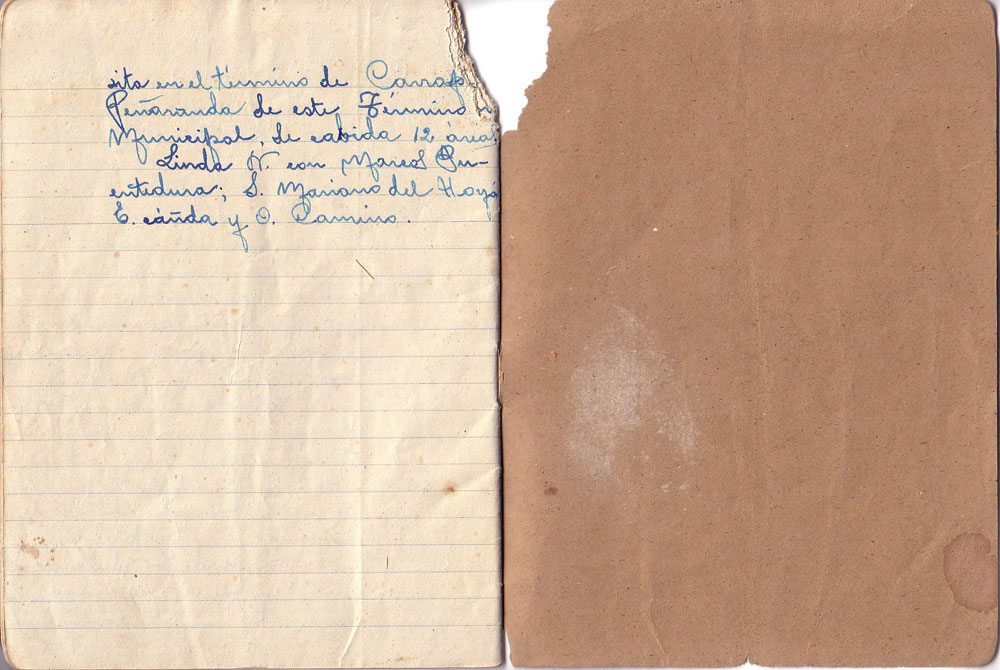 sita en el término de Carrap
Peñaranda de este Término
Municipal, de cabida 12 áreas.
Linda N. con Marcos Pu-
entedura; S. Mariano del Hoyo
E. cañda y O. Camino.